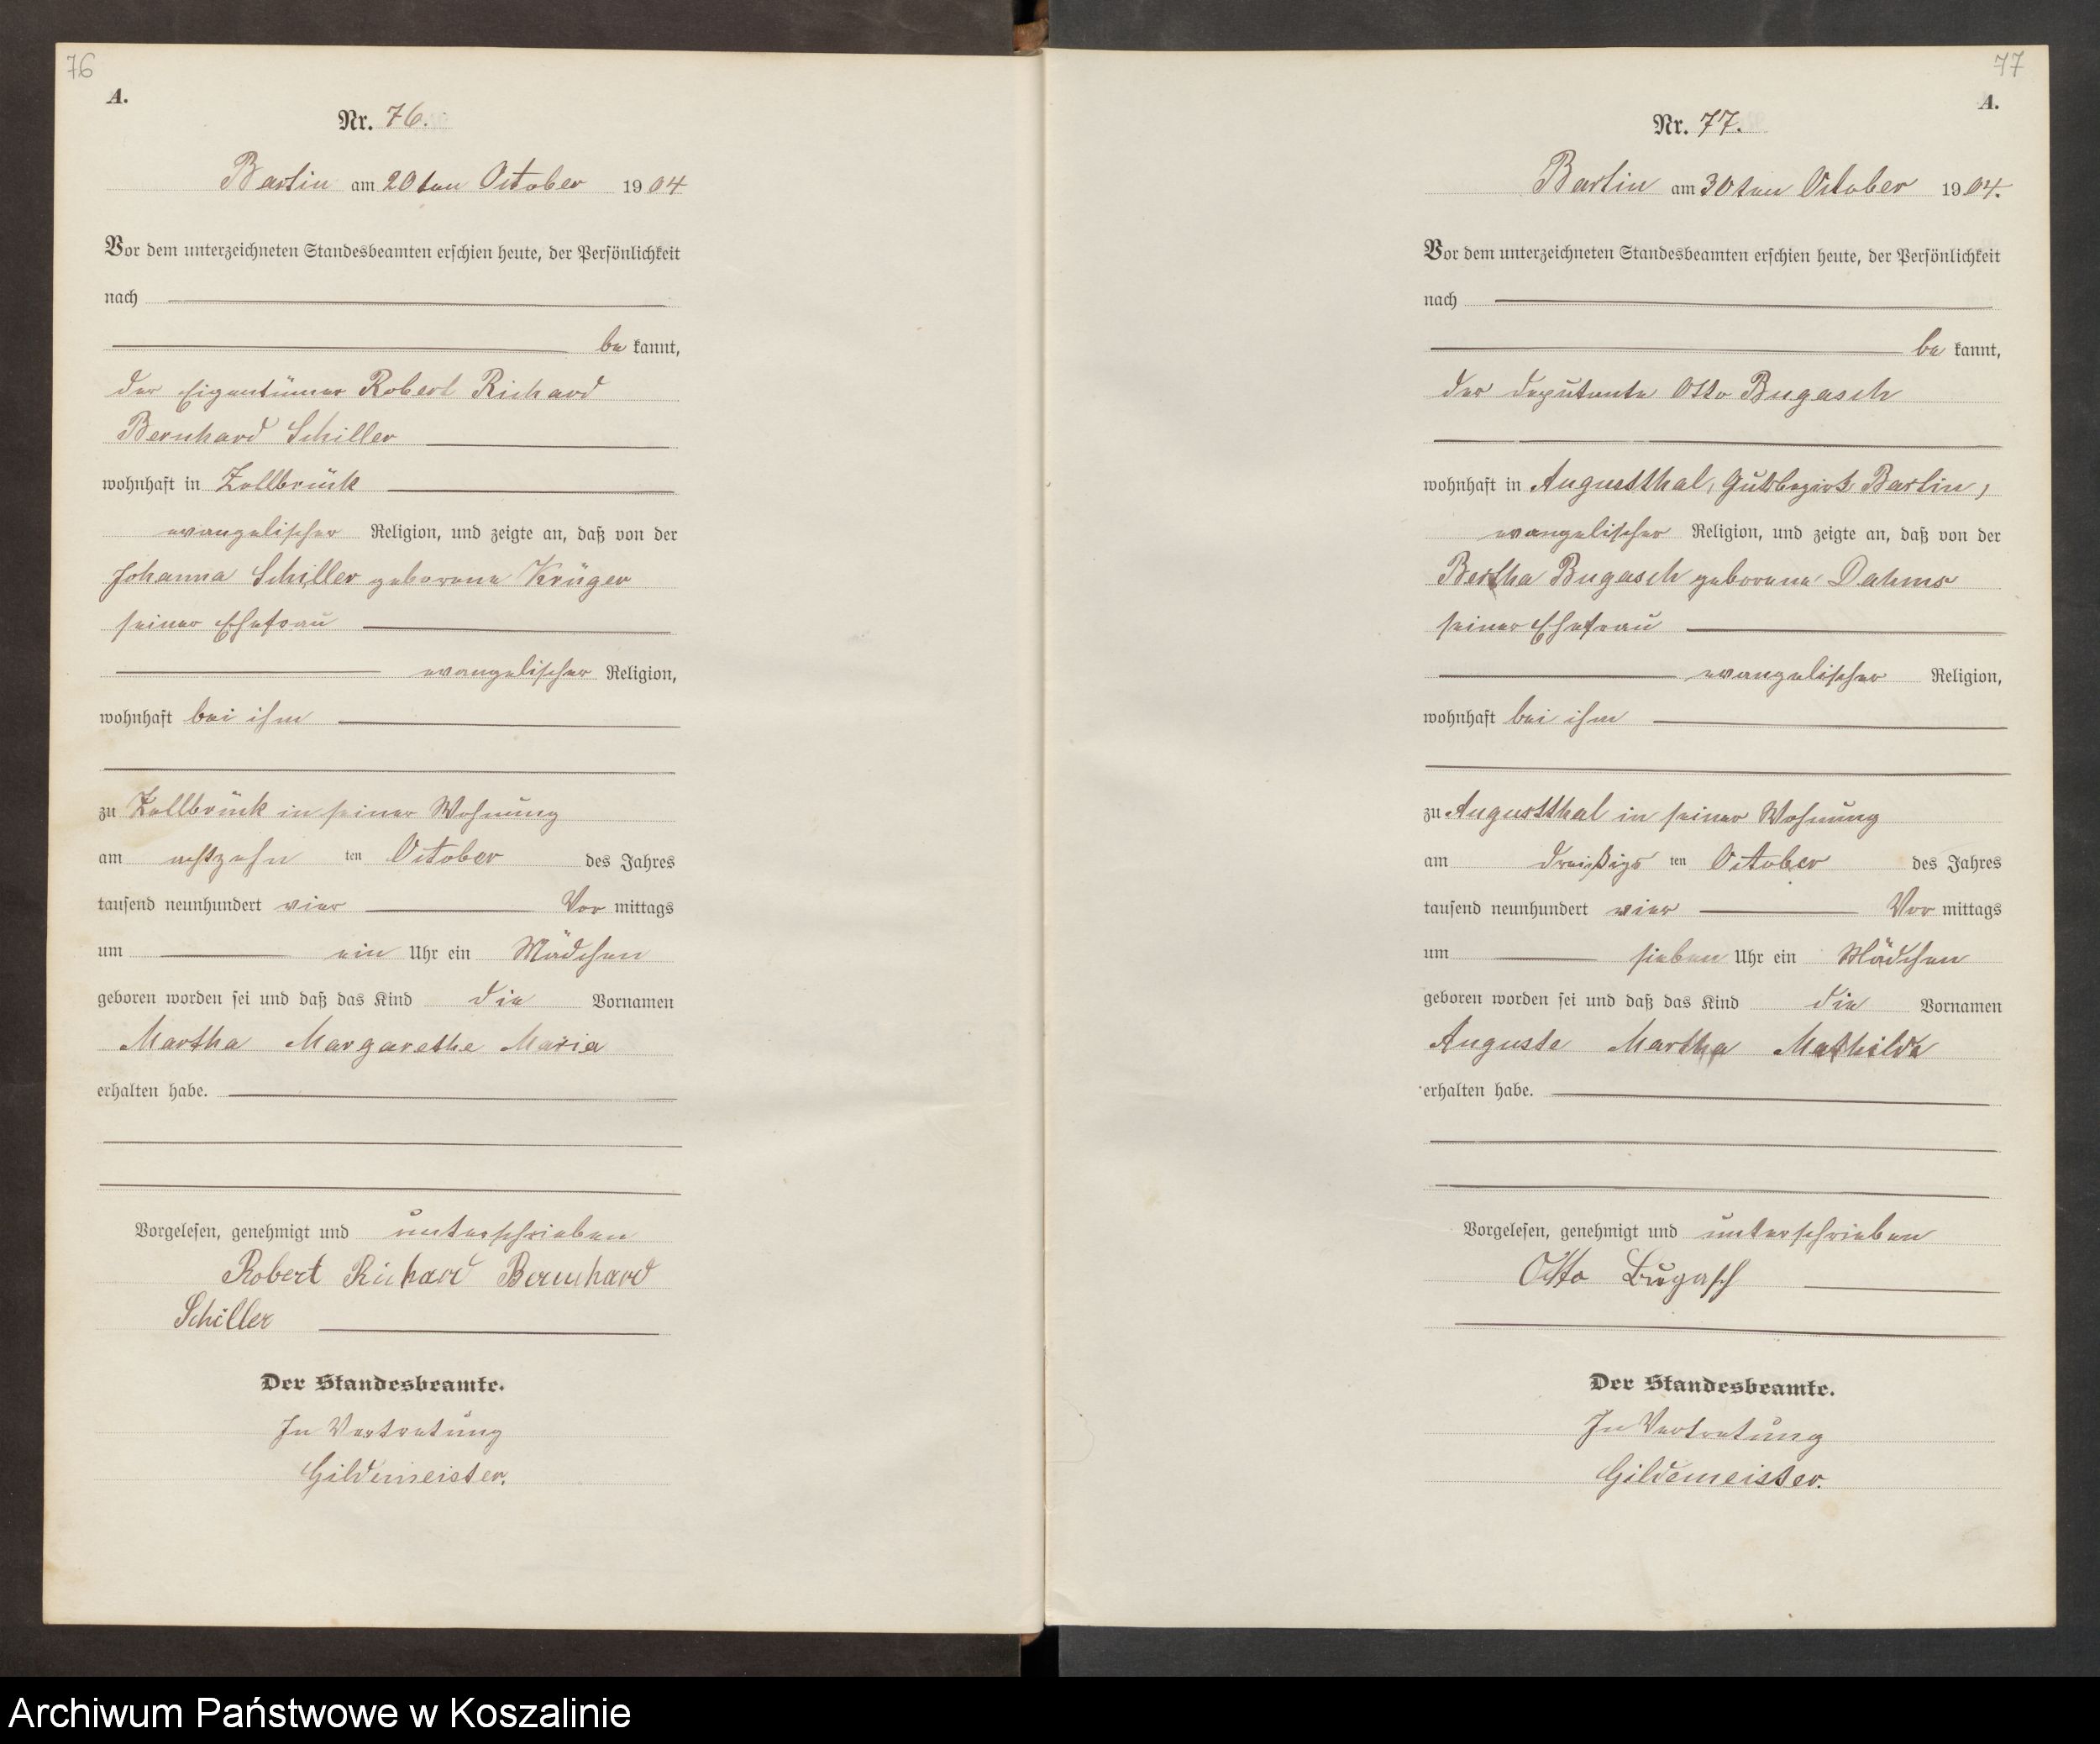 76
A.
Nr. 76.
Bartin am 20ten October 1904
Vor dem unterzeichneten Standesbeamten erschien heute, der Persönlichkeit
nach
be kannt,
der Eigentümer Robert Richard
Bernhard Schiller
wohnhaft in Zollbrück
evangelischer Religion, und zeigte an, daß von der
Johanna Schiller geborene Krüger
seiner Ehefrau
evangelischer Religion,
wohnhaft bei ihm
zu Zollbrück in seiner Wohnung
am achtzehn ten October des Jahres
tausend neunhundert vier Vor mittags
um ein Uhr ein Mädchen
geboren worden sei und daß das Kind die Vornamen
Martha Margarethe Maria
erhalten habe.
Vorgelesen, genehmigt und unterschrieben
Robert Richard Bernhard
Schiller
Der Standesbeamte.
In Vertretung
Gildemeister.
77
A.
Nr. 77.
Bartin am 30ten October 1904.
Vor dem unterzeichneten Standesbeamten erschien heute, der Persönlichkeit
nach
be kannt,
der Deputante Otto Bugasch
wohnhaft in Augustthal, Gutsbezirk Bartin,
evangelischer Religion, und zeigte an, daß von der
Bertha Bugasch geborene Dahms
seiner Ehefrau
evangelischer Religion,
wohnhaft bei ihm
zu Augustthal in seiner Wohnung
am dreißigs ten October des Jahres
tausend neunhundert vier Vor mittags
um sieben Uhr ein Mädchen
geboren worden sei und daß das Kind die Vornamen
Auguste Martha Mathilde
erhalten habe.
Vorgelesen, genehmigt und unterschrieben
Otto Bugasch
Der Standesbeamte.
In Vertretung
Gildemeister.
Archiwum Państwowe w Koszalinie